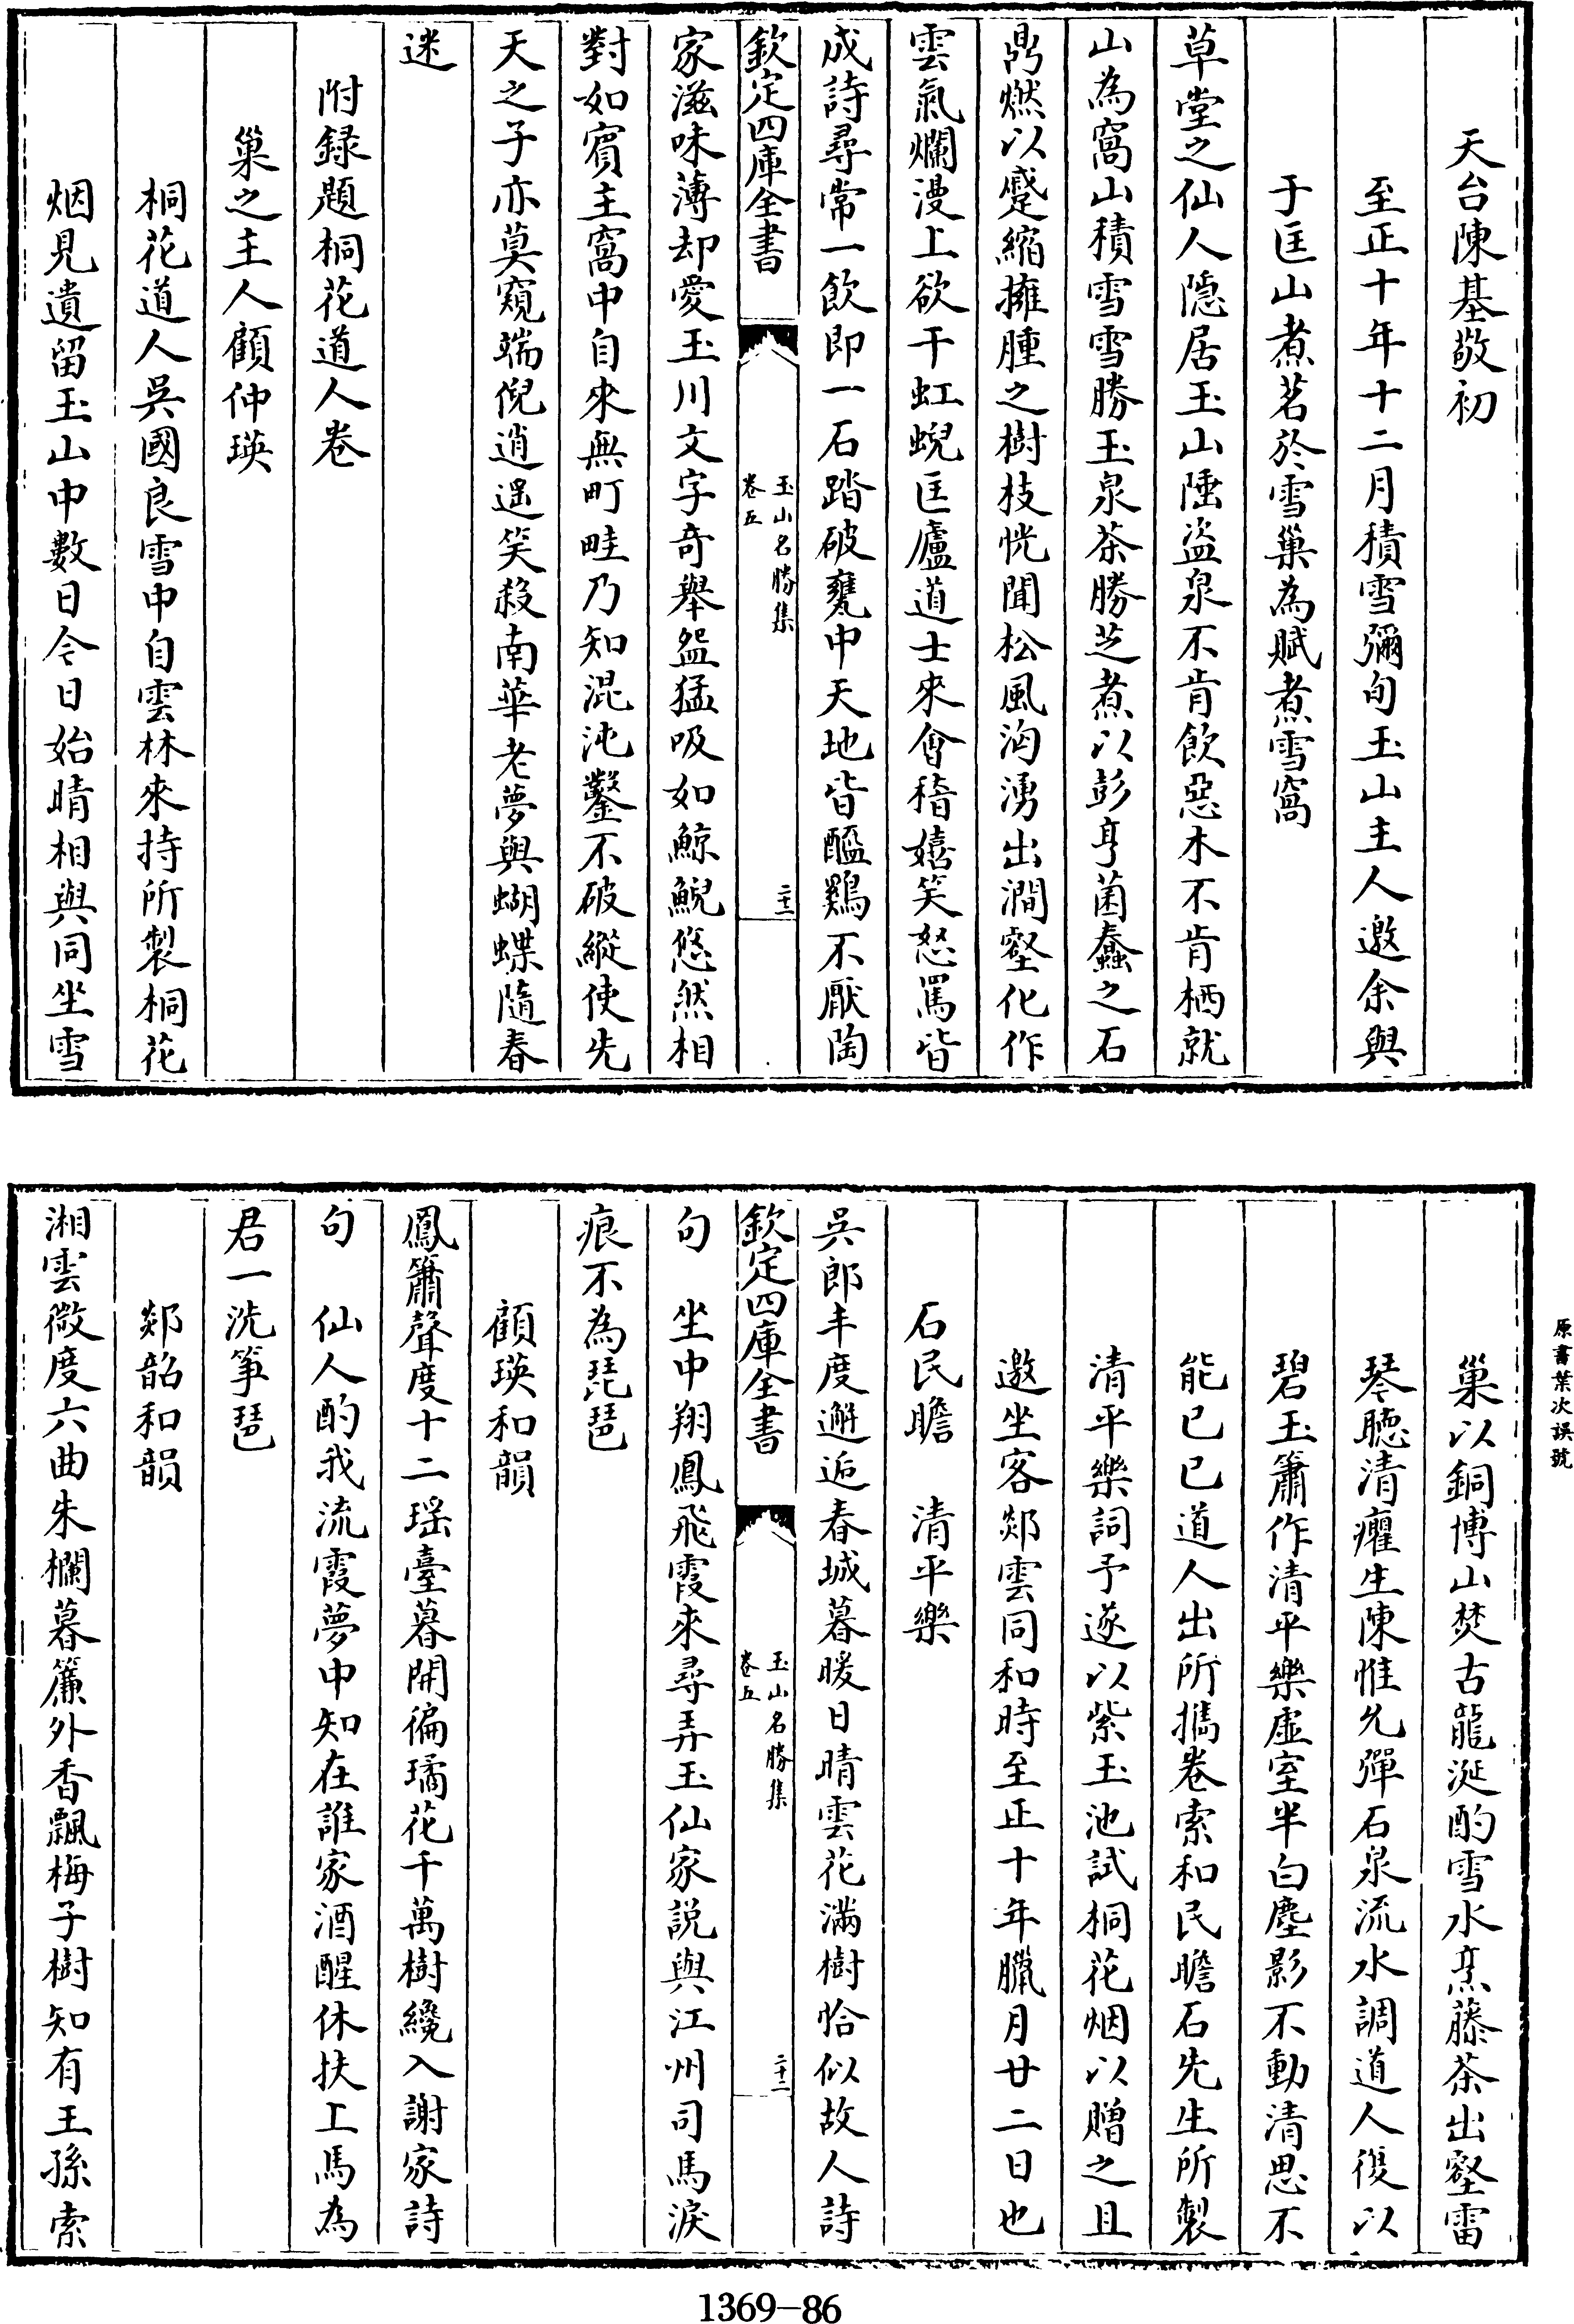 天台陳基敬初
至正十年十二月積雪彌旬玉山主人邀余與
于匡山煮茗於雪巢為賦煮雪窩
草堂之仙人隱居玉山陲盜泉不肯飲惡木不肯栖就
山為窩山積雪雪勝玉泉茶勝芝煮以彭亨菌蠢之石
鼎燃以蹙縮擁腫之樹枝恍聞松風洶湧出澗壑化作
雲氣爛漫上欲干虹蜺匡廬道士來會稽嬉笑怒罵皆
成詩尋常一飲即一石踏破甕中天地皆醯鷄不厭陶
欽定四庫全書
玉山名勝集
卷五
二十一
家滋味薄却愛玉川文字奇舉盌猛吸如鯨鯢悠然相
對如賓主窩中自來無町畦乃知混沌鑿不破縱使先
天之子亦莫窺端倪逍遥笑殺南華老夢與蝴蝶隨春
迷
附録題桐花道人卷
巢之主人顧仲瑛
桐花道人吳國良雪中自雲林來持所製桐花
烟見遺留玉山中數日今日始晴相與同坐雪
原書葉次誤號
巢以銅博山焚古龍涎酌雪水烹藤茶出壑雷
琴聴清癯生陳惟允彈石泉流水調道人復以
碧玉簫作清平樂虛室半白塵影不動清思不
能已已道人出所攜卷索和民瞻石先生所製
清平樂詞予遂以紫玉池試桐花烟以贈之且
邀坐客郯雲同和時至正十年臘月廿二日也
石民瞻　清平樂
吳郎丰度邂逅春城暮暖日晴雲花滿樹恰似故人詩
欽定四庫全書
玉山名勝集
卷五
二十二
句　坐中翔鳳飛霞來尋弄玉仙家説與江州司馬淚
痕不為琵琶
顧瑛和韻
鳳簫聲度十二瑶臺暮開徧璚花千萬樹纔入謝家詩
句　仙人酌我流霞夢中知在誰家酒醒休扶上馬為
君一洗箏琶
郯韶和韻
湘雲微度六曲朱欄暮簾外香飄梅子樹知有王孫索
1369—86